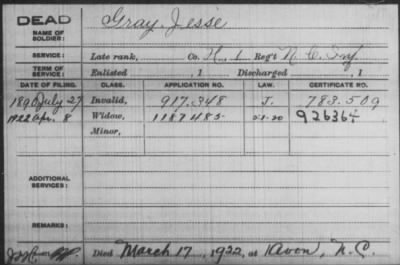 DEAD
NAME OF SOLDIER: Gray, Jesse
SERVICE: Late rank, Co. H, 1 Reg't N. C. Inf
TERM OF SERVICE: Enlisted , 1 Discharged , 1
DATE OF FILING. CLASS. APPLICATION NO. LAW. CERTIFICATE NO.
1890 July 27 Invalid, 917.348 J. 783.509
1922 Apr. 8 Widow, 1187485 5-1-20 926364
Minor,
ADDITIONAL SERVICES:
REMARKS:
Died March 17, 1922, at Avon, N. C.